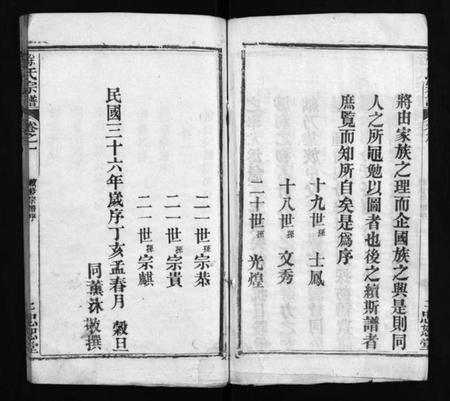 將由家族之理而企國族之興是則同
人之所黽勉以圖者也後之續斯譜者
庶覽而知所自矣是爲序
十九世孫 士鳳
十八世孫 文秀
二十世孫 光煌
二一世孫 宗恭
二一世孫 宗貴
二一世孫 宗麒
民國三十六年歲序丁亥孟春月 穀旦
同薰沐敬撰
氏宗譜
卷之一
忠恕堂